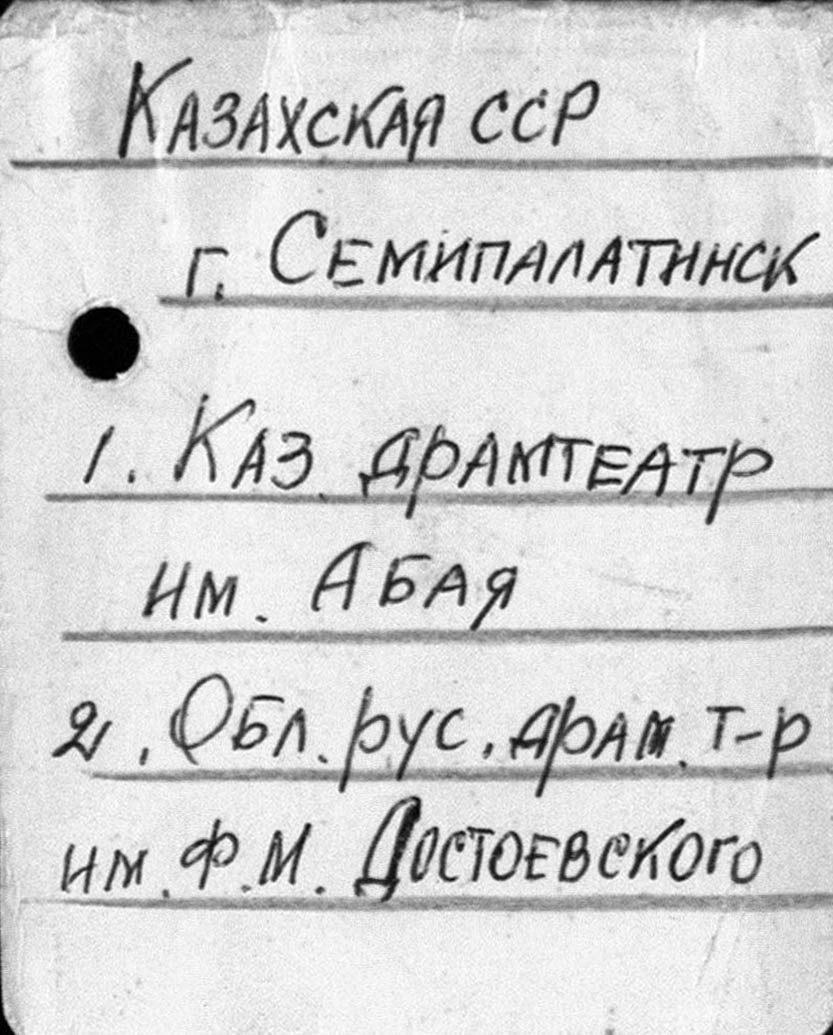 Казахская ССР
г. Семипалатинск
1. Каз. драмтеатр
им. Абая
2. Обл. рус. драм. т-р
им. Ф.М. Достоевского